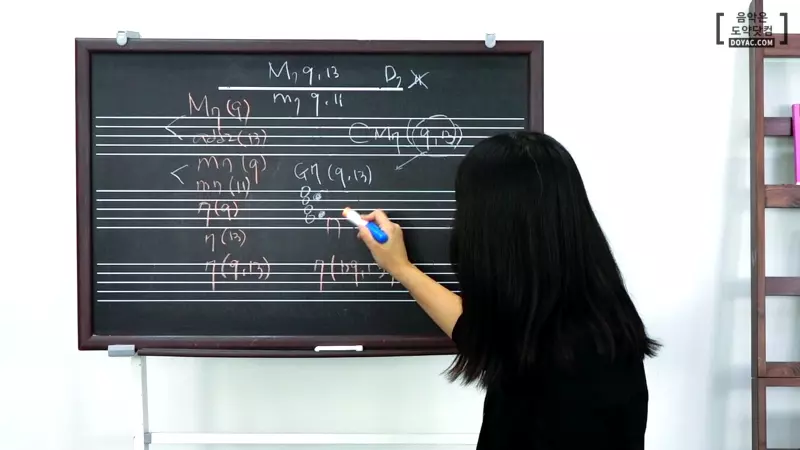 음악은
도약닷컴
DOYAC.COM
M7 9,13
m7 9,11
D7
M7(9)
add2(13)
CM7(9,13)
m7(9)
m7(11)
G7(9,13)
7(9)
7(13)
7(9,13)